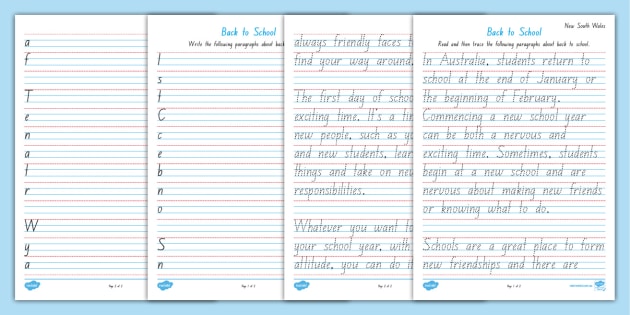 a
f
T
e
n
a
t
r
W
y
a
Page 2 of 2
Back to School
Write the following paragraphs about back
I
s
t
C
c
e
b
n
o
S
n
Page 1 of 2
always friendly faces t
find your way around.
The first day of schoo
exciting time. It's a tim
new people, such as yo
and new students, lear
things and take on new
responsibilities.
Whatever you want to
your school year, with
attitude, you can do it
Page 2 of 2
New South Wales
Back to School
Read and then trace the following paragraphs about back to school.
In Australia, students return to
school at the end of January or
the beginning of February.
Commencing a new school year
can be both a nervous and
exciting time. Sometimes, students
begin at a new school and are
nervous about making new friends
or knowing what to do.
Schools are a great place to form
new friendships and there are
Page 1 of 2